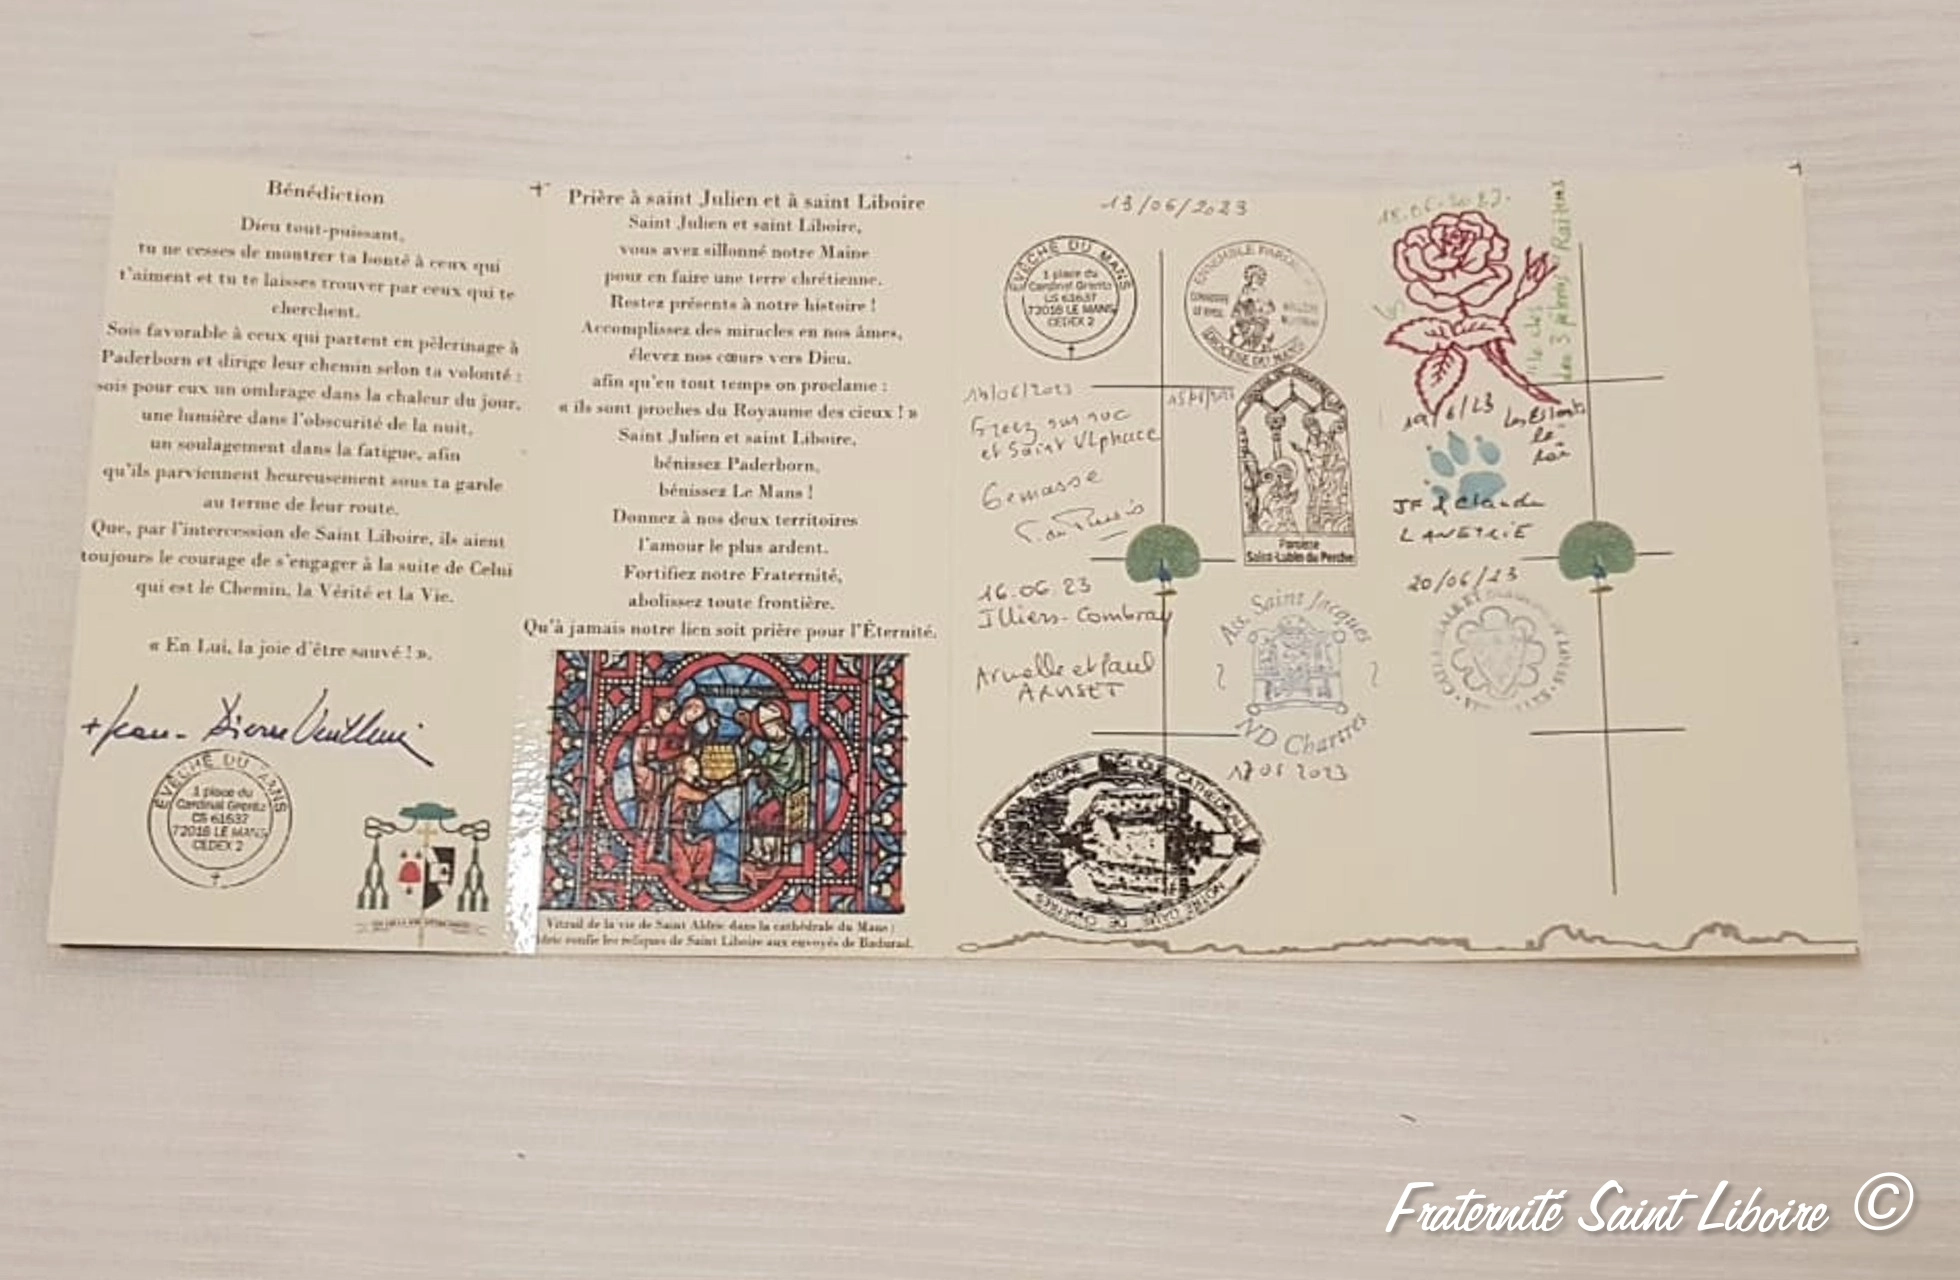 Bénédiction
Dieu tout-puissant,
tu ne cesses de montrer ta bonté à ceux qui
t'aiment et tu te laisses trouver par ceux qui te
cherchent.
Sois favorable à ceux qui partent en pèlerinage à
Paderborn et dirige leur chemin selon ta volonté ;
sois pour eux un ombrage dans la chaleur du jour,
une lumière dans l'obscurité de la nuit,
un soulagement dans la fatigue, afin
qu'ils parviennent heureusement sous ta garde
au terme de leur route.
Que, par l'intercession de Saint Liboire, ils aient
toujours le courage de s'engager à la suite de Celui
qui est le Chemin, la Vérité et la Vie.
« En Lui, la joie d'être sauvé ! ».
+ Jean-Pierre
ÉVÊCHÉ DU MANS
1 place du
Cardinal Grente
CS 61637
72016 LE MANS
CEDEX 2
Prière à saint Julien et à saint Liboire
Saint Julien et saint Liboire,
vous avez sillonné notre Maine
pour en faire une terre chrétienne.
Restez présents à notre histoire !
Accomplissez des miracles en nos âmes,
élevez nos cœurs vers Dieu,
afin qu'en tout temps on proclame :
« ils sont proches du Royaume des cieux ! »
Saint Julien et saint Liboire,
bénissez Paderborn,
bénissez Le Mans !
Donnez à nos deux territoires
l'amour le plus ardent.
Fortifiez notre Fraternité,
abolissez toute frontière.
Qu'à jamais notre lien soit prière pour l'Éternité.
Vitrail de la vie de Saint Aldric dans la cathédrale du Mans :
confie les reliques de Saint Liboire aux envoyés de Badurad.
13/06/2023
ÉVÊCHÉ DU MANS
1 place du
Cardinal Grente
CS 61637
72016 LE MANS
CEDEX 2
ENSEMBLE
DIOCÈSE DU MANS
14/06/2023
Greez sur roc
et Saint Ulphace
Gemasse
15/06/
Paroisse
Saint-Lubin du Perche
16.06.23
Illiers-Combray
et Paul
Ass. Saint Jacques
ND Chartres
17 06 2023
ÉGLISE CATHÉDRALE
NOTRE DAME DE CHARTRES
18.06.2023.
des 3 pèlerins
19/6/23
JF & Claude
20/06/23
Fraternité Saint Liboire ©